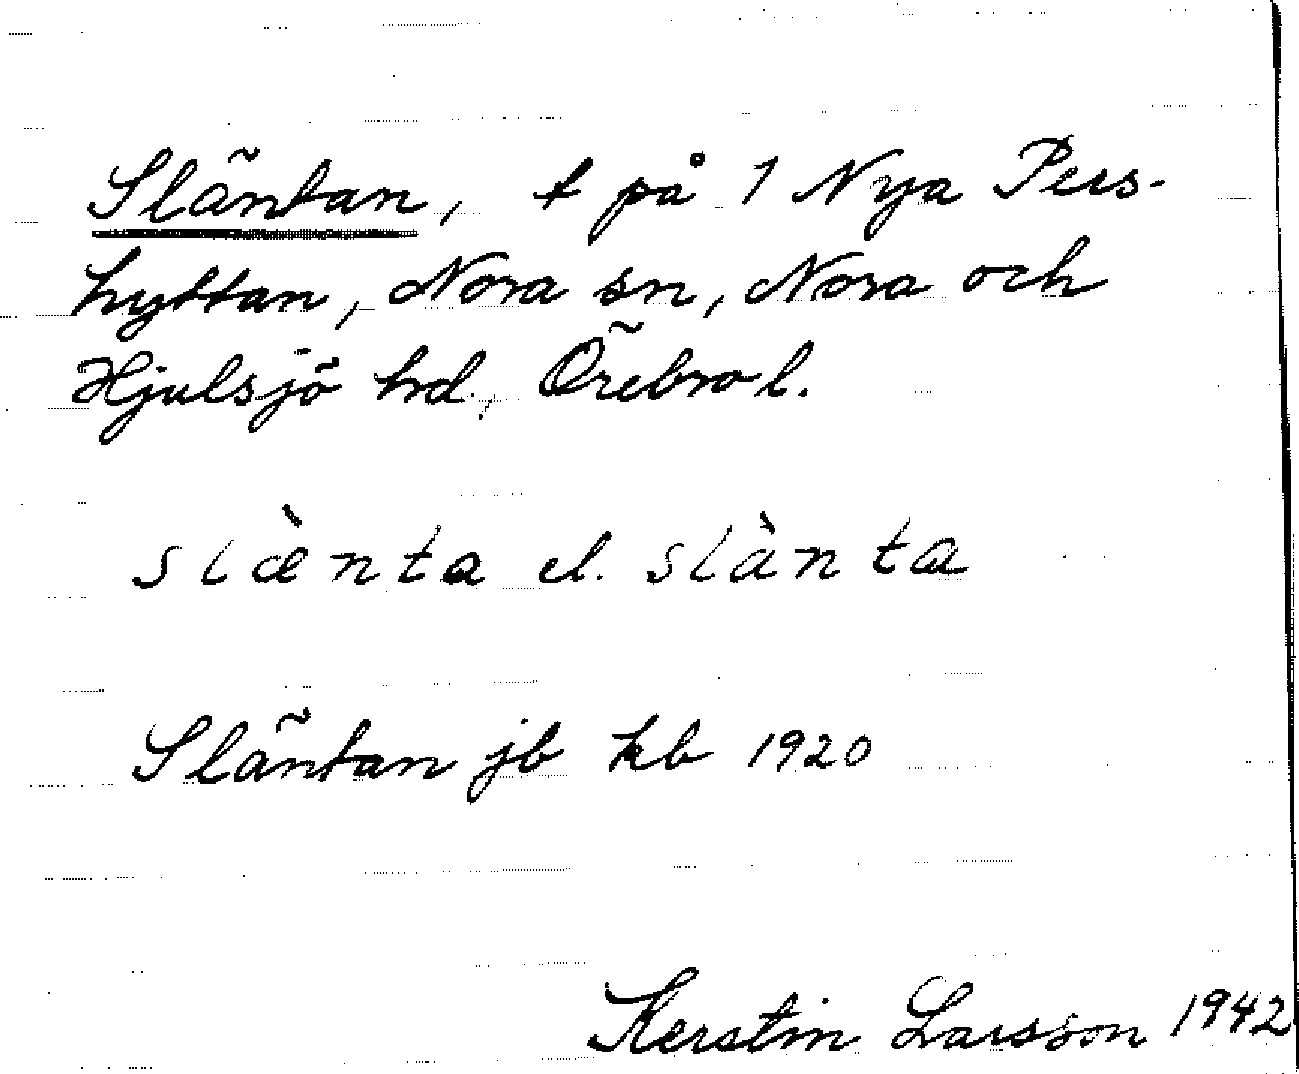 Släntan, t på 1 Nya Pers-
hyttan, Nora sn, Nora och
Hjulsjö hd, Örebro l.
slæ̀nta el. slànta
Släntan jb kb 1920
Kerstin Larsson 1942